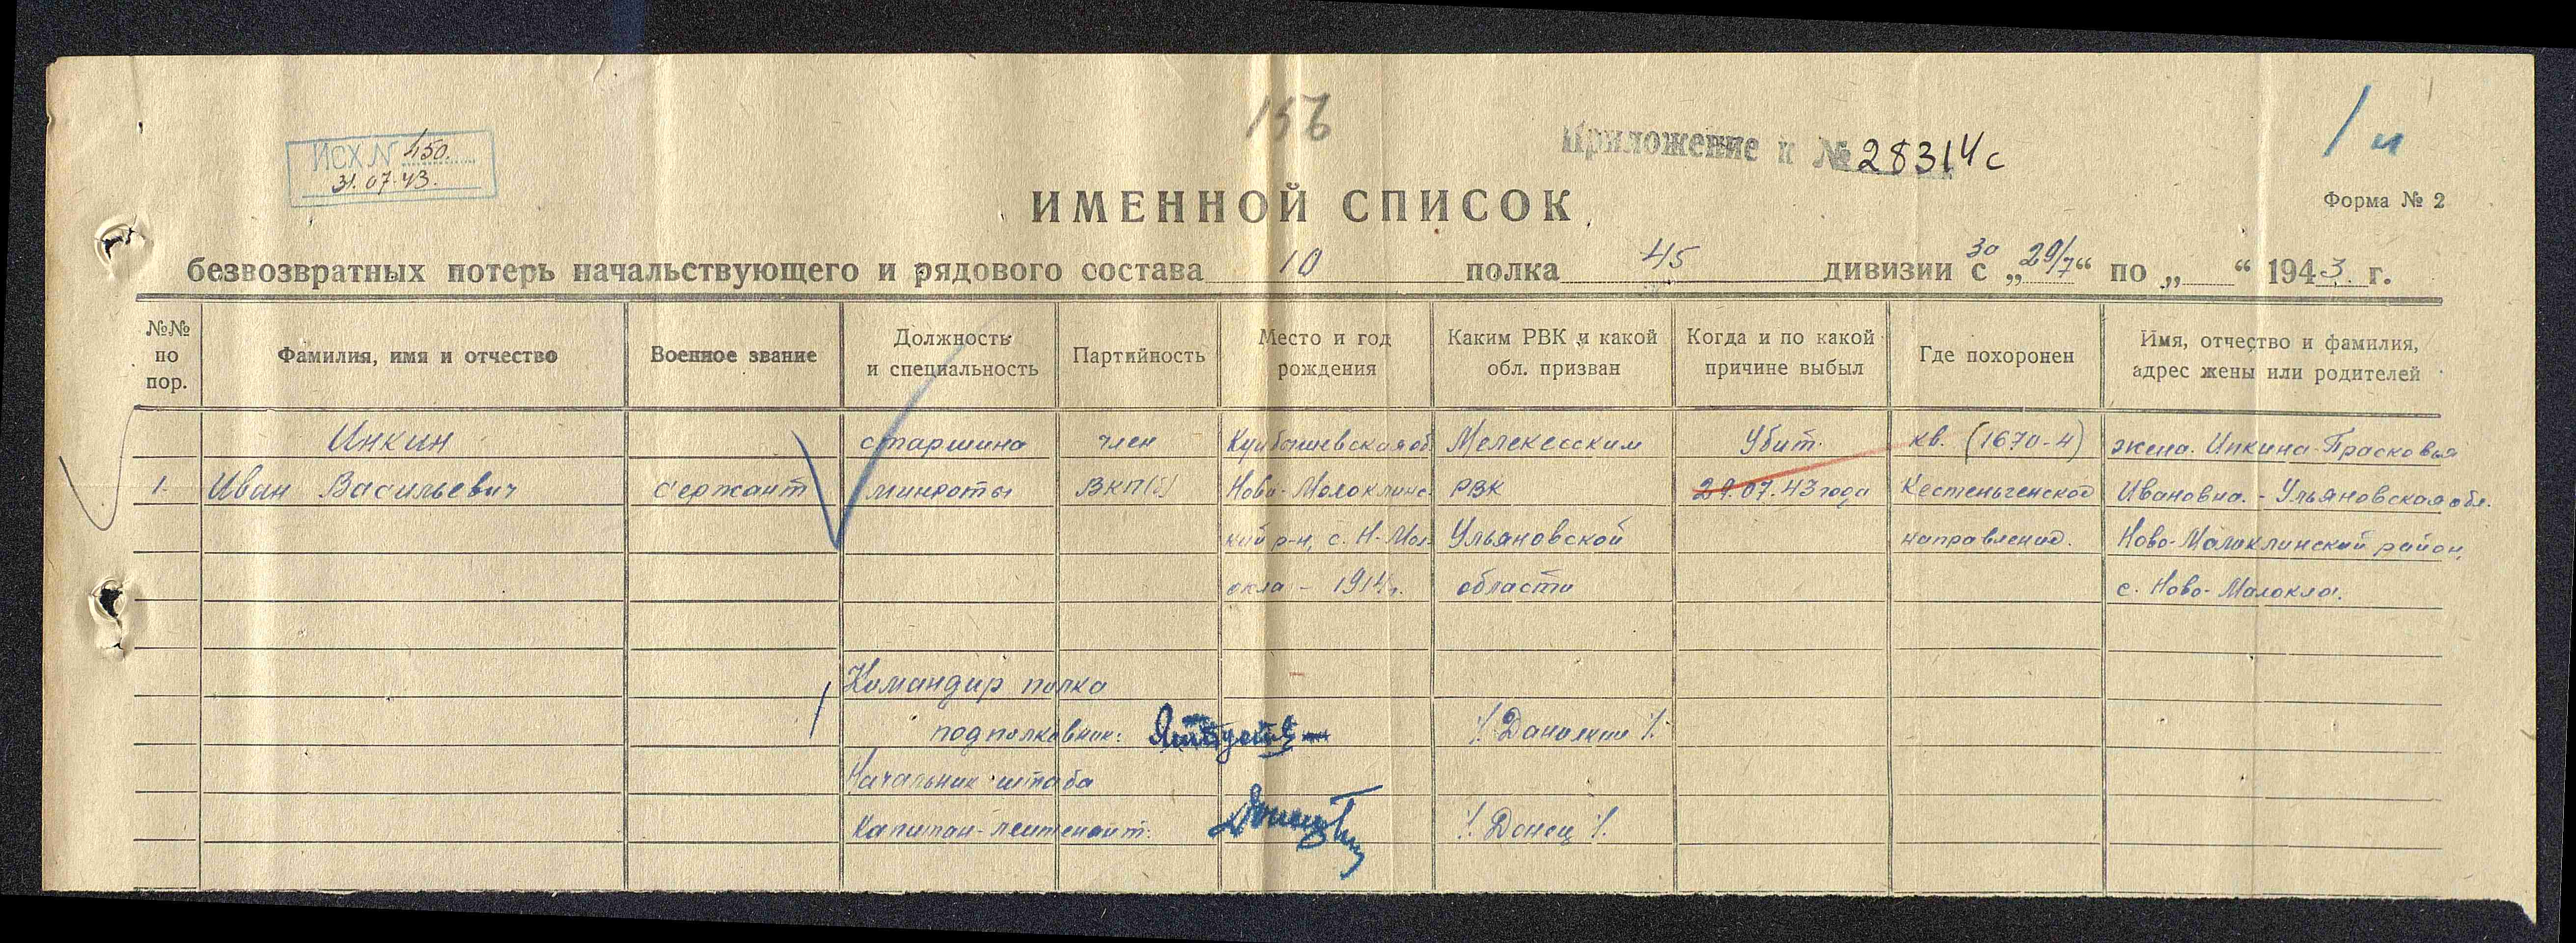 156
ИСХ N 450.
31.07.43.
Приложение к № 28314с
1
Форма № 2
ИМЕННОЙ СПИСОК
безвозвратных потерь начальствующего и рядового состава 10 полка 45 дивизии с „29/7“ по „ “ 1943 г.
за
№№ по пор.
Фамилия, имя и отчество
Военное звание
Должность и специальность
Партийность
Место и год рождения
Каким РВК и какой обл. призван
Когда и по какой причине выбыл
Где похоронен
Имя, отчество и фамилия, адрес жены или родителей
Инкин старшина член Куйбышевская об. Мелекесским Убит. кв. (1670-4) жена. Инкина Прасковья
1. Иван Васильевич сержант минроты ВКП(б) Ново-Малоклинс- РВК 29.07.43 года Кестеньгенское Ивановна. - Ульяновская обл.
кий р-н, с. Н-Мал- Ульяновской направление. Ново-Малоклинский район,
окла - 1914г. области с. Ново-Малокла.
Командир полка
подполковник: /Данилкин/
Начальник штаба
Капитан-лейтенант: /Донец/